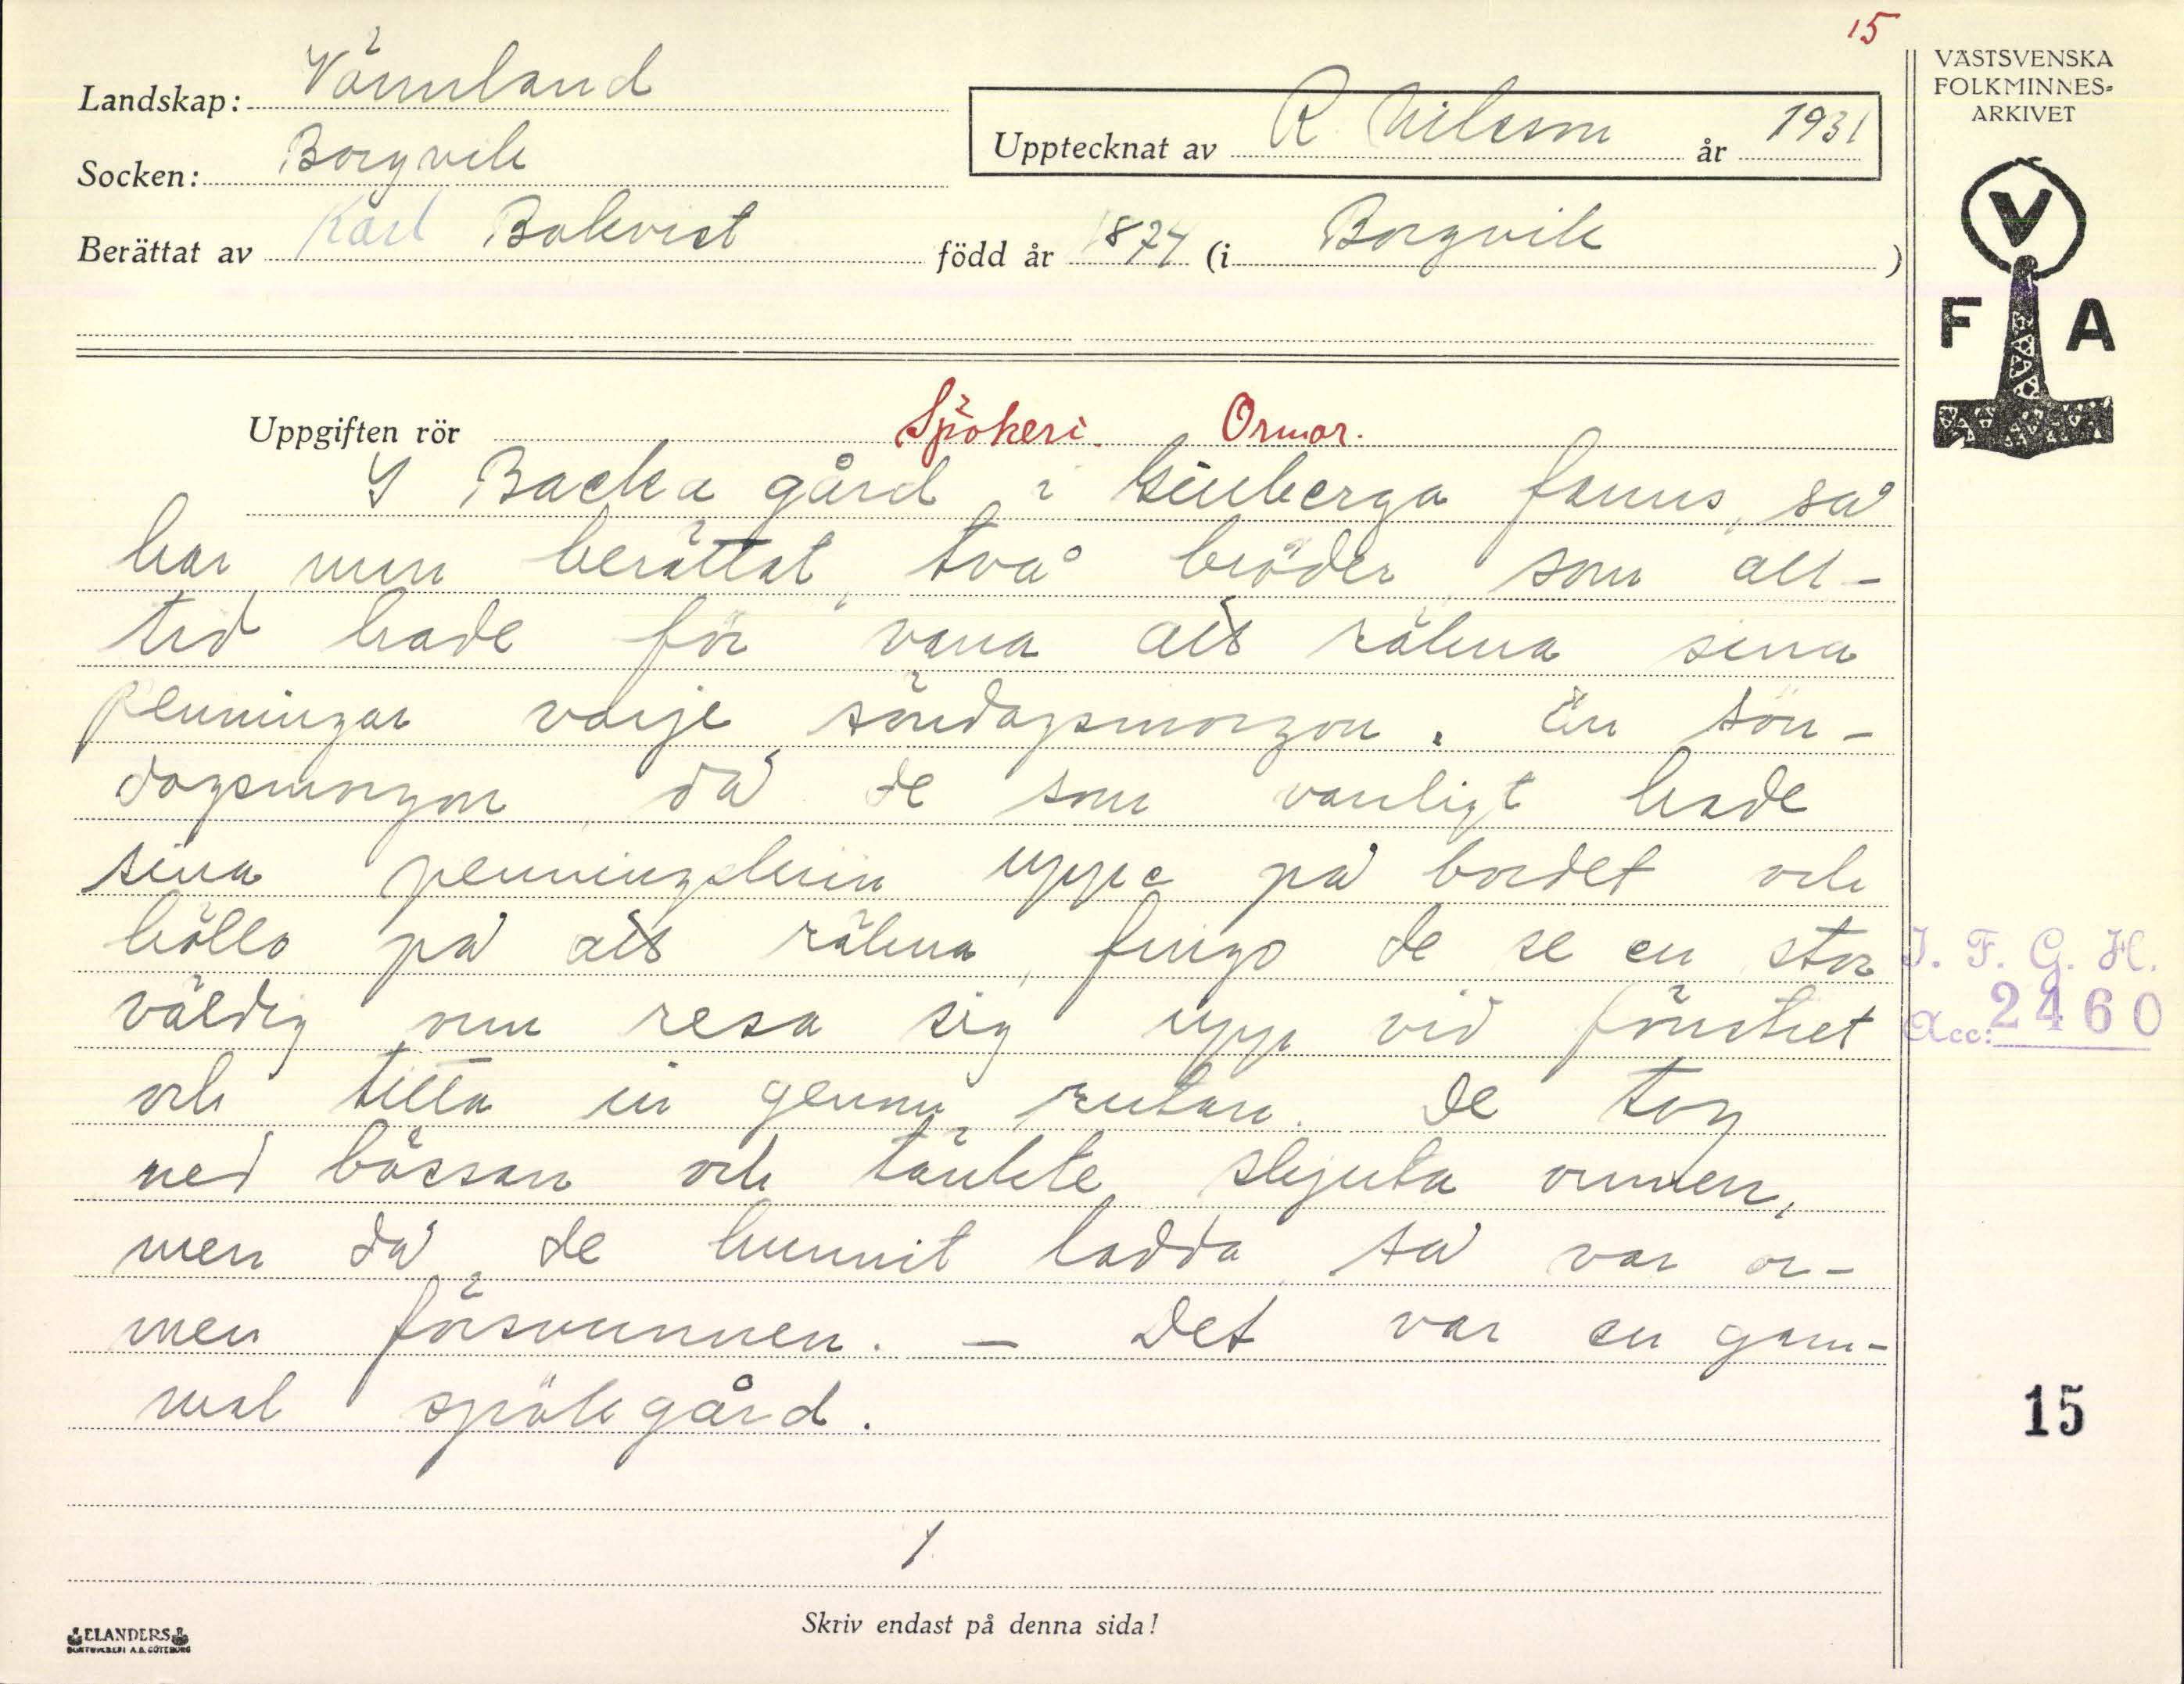 15
VÄSTSVENSKA
FOLKMINNES-
ARKIVET
Landskap: Värmland
Upptecknat av R. Nilsson år 1931
Socken: Borgvik
Berättat av Karl Bokvist född år 1874 (i Borgvik)
V
F A
Uppgiften rör Spökeri. Ormar.
I Backa gård i Gillberga fanns, så
har man berättat, två bröder, som all-
tid hade för vana att räkna sina
penningar varje söndagsmorgon. En sön-
dagsmorgon, då de som vanligt hade
sina penningskrin uppe på bordet och
höllo på att räkna, fingo de se en stor
väldig orm resa sig upp vid fönstret
och titta in genom rutan. De tog
ned bössan och tänkte skjuta ormen,
men då de hunnit ladda, så var or-
men försvunnen. – Det var en gam-
mal spökgård.
I. F. G. H.
Acc: 2460
15
1
Skriv endast på denna sida!
ELANDERS
BOKTRYCKERI A.B. GÖTEBORG